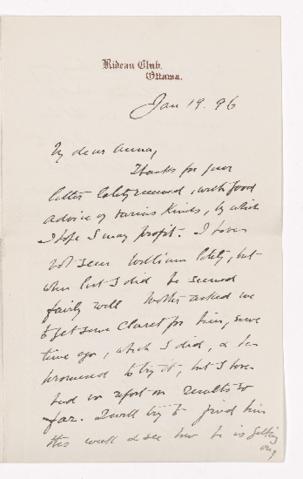 Rideau Club,
Ottawa.
Jan 19. 96
My dear Anna,
Thanks for your
letter lately received, with good
advice of various kinds, by which
I hope I may profit. I have
not seen William lately, but
when last I did, he seemed
fairly well Mother asked me
to get some Claret for him, some
time ago, which I did, & he
promised to try it, but I have
had no report on results so
far. I will try to find him
this week & see how he is getting
on,